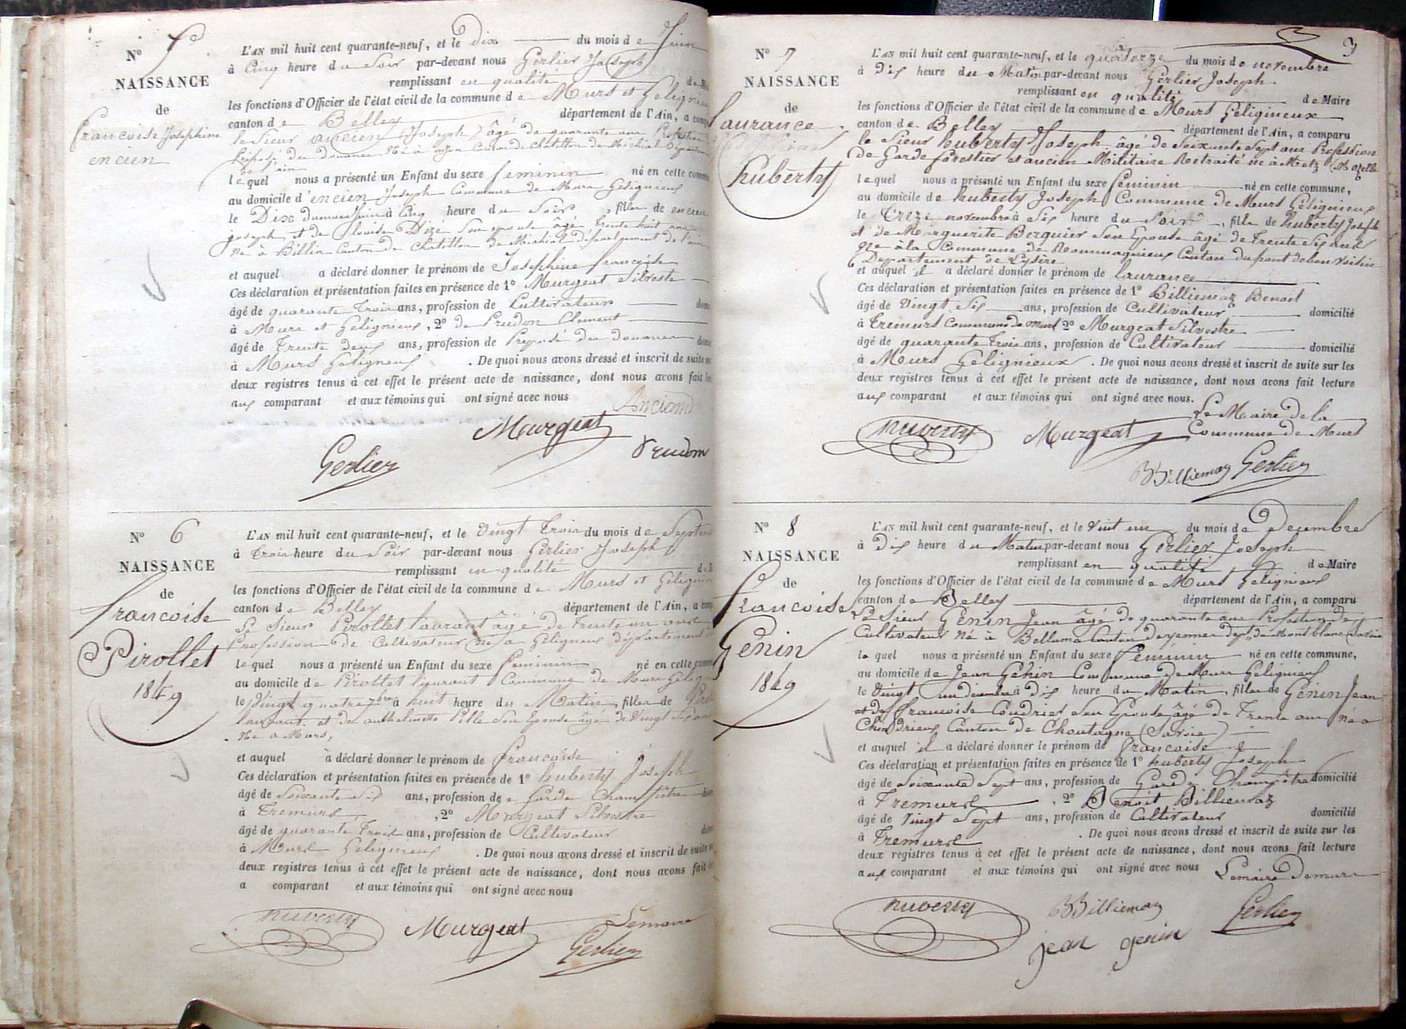 N° 5
NAISSANCE
de
françoise Joséphine
encien
L'AN mil huit cent quarante-neuf, et le dix du mois de Juin
à Cinq heure du Soir par-devant nous Gerlier Joseph
remplissant en qualité de M
les fonctions d'Officier de l'état civil de la commune de Murs et Gelignieux
canton de Belley département de l'Ain, a comp
le Sieur ancien Joseph âgé de quarante ans Profession
lequel nous a présenté un Enfant du sexe feminin né en cette commune
au domicile d'encien Joseph Commune de Murs Gelignieux
le Dix du mois Juin à Cinq heure du Soir, fille de encien
joseph et de son epouse âgé Trente huit ans
né à Billia Canton de Chatillon de Michail département de l'ain
et auquel a déclaré donner le prénom de Josephine françoise
Ces déclaration et présentation faites en présence de 1° Murgeat Silvestre
âgé de quarante Trois ans, profession de Cultivateur domi
à Murs et Gelignieux, 2° de Prudon Clement
âgé de Trente deux ans, profession de Preposé des douanes domi
à Murs Gelignieux. De quoi nous avons dressé et inscrit de suite sur
deux registres tenus à cet effet le présent acte de naissance, dont nous avons fait lec
aux comparant et aux témoins qui ont signé avec nous
Anciend
Murgeat
Prudom
Gerlier
N° 6
NAISSANCE
de
francoise
Pirollet
1849
L'AN mil huit cent quarante-neuf, et le Vingt Trois du mois de Septemb
à Trois heure du Soir par-devant nous Gerlier Joseph
remplissant en qualité de M
les fonctions d'Officier de l'état civil de la commune de Murs et Gelignieux
canton de Belley département de l'Ain, a comp
le Sieur Pirollet laurant âgé de trente un ans
Profession de Cultivateur né à Gelignieux département
lequel nous a présenté un Enfant du sexe feminin né en cette commune
au domicile de Pirollet laurant Commune de Murs Gelignieux
le Vingt quatre 7bre à huit heure du Matin, fille de Pirol
laurant et de anthelmette Pille Son Epouse âgée de Vingt Six ans
Né a Murs,
et auquel a déclaré donner le prénom de francoise
Ces déclaration et présentation faites en présence de 1° huberty Joseph
âgé de Soixante Six ans, profession de garde Champêtre domi
à Tremurs, 2° Murgeat Silvestre
âgé de quarante Trois ans, profession de Cultivateur domi
à Murs Gelignieux. De quoi nous avons dressé et inscrit de suite sur
deux registres tenus à cet effet le présent acte de naissance, dont nous avons fait lec
a comparant et aux témoins qui ont signé avec nous
huberty
Murgeat
Lemaire
Gerlier
3
N° 7
NAISSANCE
de
laurance
huberty
L'AN mil huit cent quarante-neuf, et le quatorze du mois de novembre
à Dix heure du Matin par-devant nous Gerlier Joseph
remplissant en qualité de Maire
les fonctions d'Officier de l'état civil de la commune de Murs Geligineux
canton de Belley département de l'Ain, a comparu
le Sieur huberty Joseph, âgé de Soixante Sept ans Profession
de Garde forestier et ancien Militaire Retraité né à Metz (Mozelle
lequel nous a présenté un Enfant du sexe feminin né en cette commune,
au domicile de huberty Joseph Commune de Murs Gelignieux
le Treize novembre à Six heure du Soir, fille de huberty Joseph
et de Marguerite Berquier Son Epouse âgé de Trente Six ans
née à la Commune de Romagnieux Canton du pont de beau Voisin
Département de L'ysère
et auquel il a déclaré donner le prénom de laurance
Ces déclaration et présentation faites en présence de 1° Billiemaz Benoit
âgé de Vingt Six ans, profession de Cultivateur domicilié
à Tremurs Commune de Murs 2° Murgeat Silvestre
âgé de quarante Trois ans, profession de Cultivateur domicilié
à Murs Gelignieux. De quoi nous avons dressé et inscrit de suite sur les
deux registres tenus à cet effet le présent acte de naissance, dont nous avons fait lecture
aux comparant et aux témoins qui ont signé avec nous.
Le Maire de la
Commune de Murs
huberty
Murgeat
B Billiemaz
Gerlier
N° 8
NAISSANCE
de
francoise
Genin
1849
L'AN mil huit cent quarante-neuf, et le Vint un du mois de Decembre
à Dix heure du Matin par-devant nous Gerlier Joseph
remplissant en qualité de Maire
les fonctions d'Officier de l'état civil de la commune de Murs Gelignieux
canton de Belley département de l'Ain, a comparu
Le Sieur Genin Jean âgé de quarante ans Profession de
Cultivateur Né à Bellema Canton de yenne dept de Mont blanc Savoie
lequel nous a présenté un Enfant du sexe feminin né en cette commune,
au domicile de Jean Genin Commune de Murs Gelignieux
le Vingt un à dix heure du Matin, fille de Genin Jean
et de francoise Coudrier Son Epouse âgé de Trente ans né a
Chindrieux Canton de Chautagne (Savoie)
et auquel il a déclaré donner le prénom de francoise
Ces déclaration et présentation faites en présence de 1° huberty Joseph
âgé de Soixante Sept ans, profession de Garde Champêtre domicilié
à Tremurs, 2° Benoit Billiemaz
âgé de Vingt Sept ans, profession de Cultivateur domicilié
à Tremurs. De quoi nous avons dressé et inscrit de suite sur les
deux registres tenus à cet effet le présent acte de naissance, dont nous avons fait lecture
aux comparant et aux témoins qui ont signé avec nous
Lemaire de murs
huberty
B Billiemaz
Gerlier
jean genin